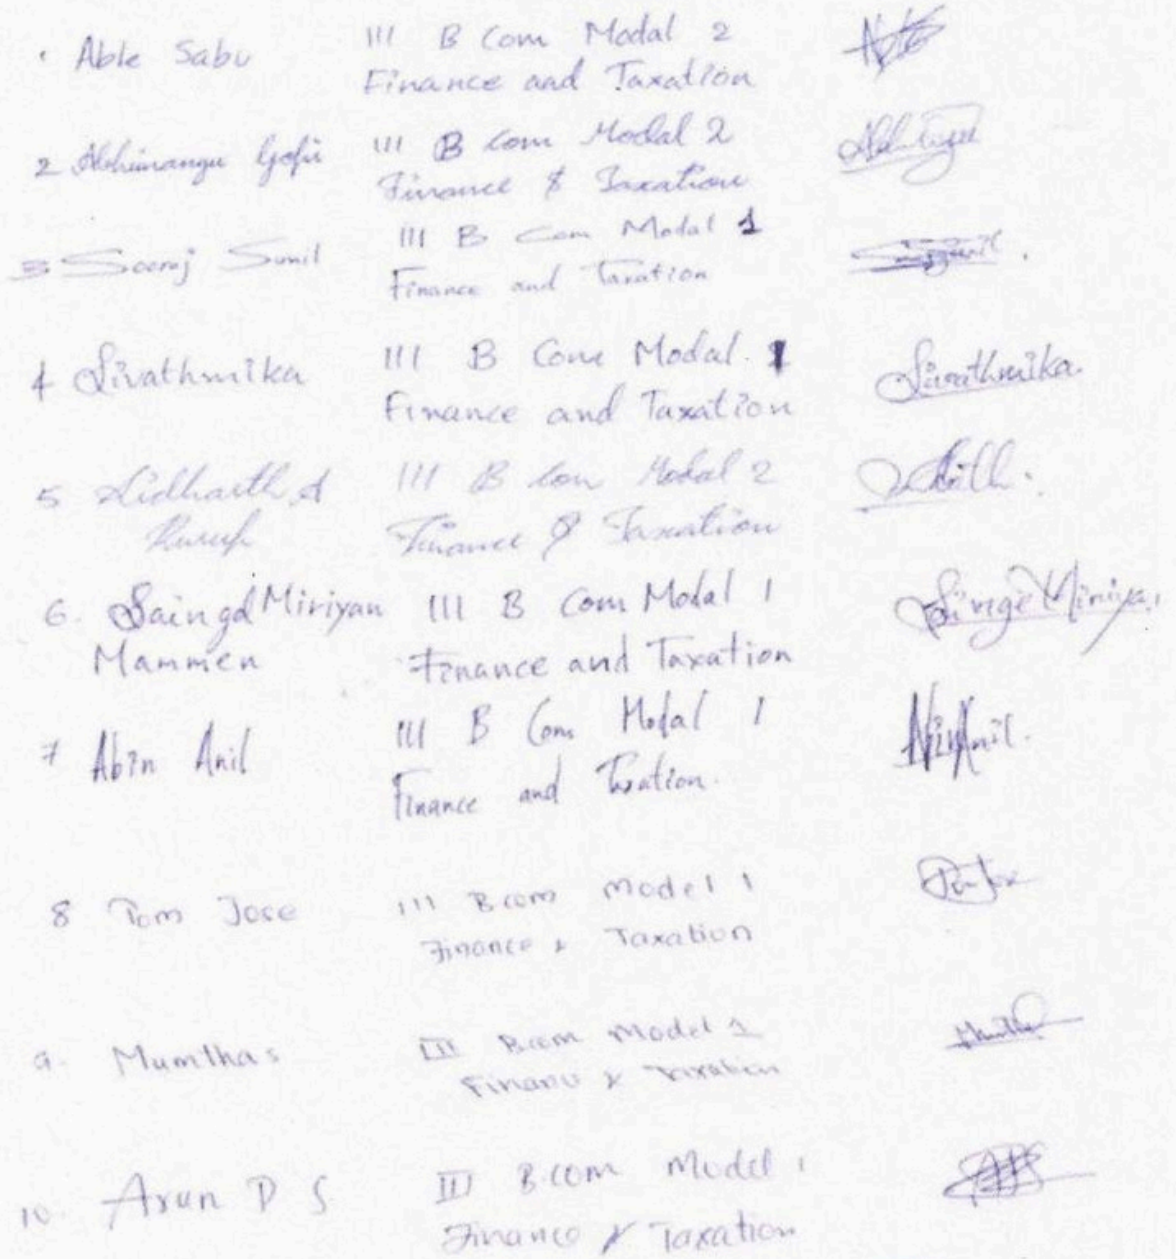 1 Able Sabu III B Com Modal 2
Finance and Taxation
2 Abhimanyu Gopi III B Com Modal 2
Finance & Taxation
3 Sooraj Sunil III B Com Modal 1
Finance and Taxation
4 Sivathmika III B Com Modal 1 Sivathmika
Finance and Taxation
5 Sidharth A III B Com Modal 2
Kurup Finance & Taxation
6. Miriyan III B Com Modal 1
Mammen Finance and Taxation
7 Abin Anil III B Com Modal 1
Finance and Taxation.
8 Tom Jose III Bcom Model 1
Finance & Taxation
9. Mumthas III Bcom Model 2
Finance & Taxation
10. Arun P S III B.com Model 1
Finance & Taxation